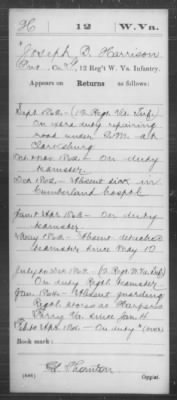 H | 12 | W. Va.
Joseph B. Harrison
Pvt. Co. G, 12 Reg't W. Va. Infantry.
Appears on
Returns
as follows:
Sept 1862 - (12 Regt Va Inf)
On extra duty repairing
road under Q.M. at
Clarksburg
Oct & Nov 1862 - On duty
teamster
Dec 1862 - Absent sick in
Cumberland hospl
Jan & Apr 1864 - On duty
teamster
May 1864 - Absent wounded
teamster since May 17
July to Dec 1864 - (12 Regt W Va Inf)
On duty Regtl teamster
Jan 1865 - Absent guarding
Regtl stores at Harpers
Ferry Va since Jan 4
Feb to Apl 1865 - On duty (over)
Book mark:
Thornton
(546)
Copyist.